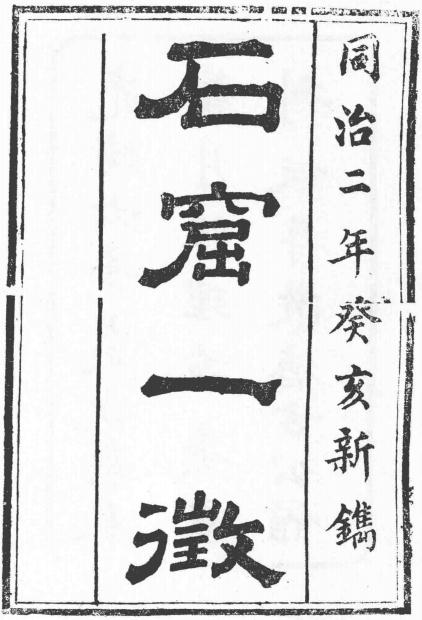 同治二年癸亥新鐫
石窟一徵